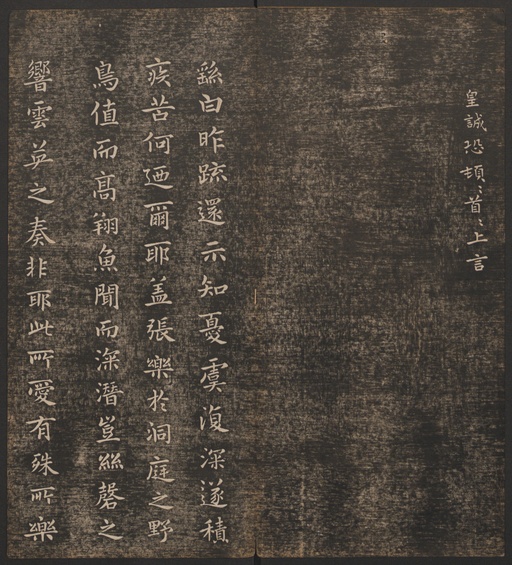 皇誠恐頓〻首〻上言
繇白昨疏還示知憂虞復深遂積
疾苦何迺爾耶蓋張樂於洞庭之野
鳥值而高翔魚聞而深潛豈絲磬之
響雲英之奏非耶此所愛有殊所樂